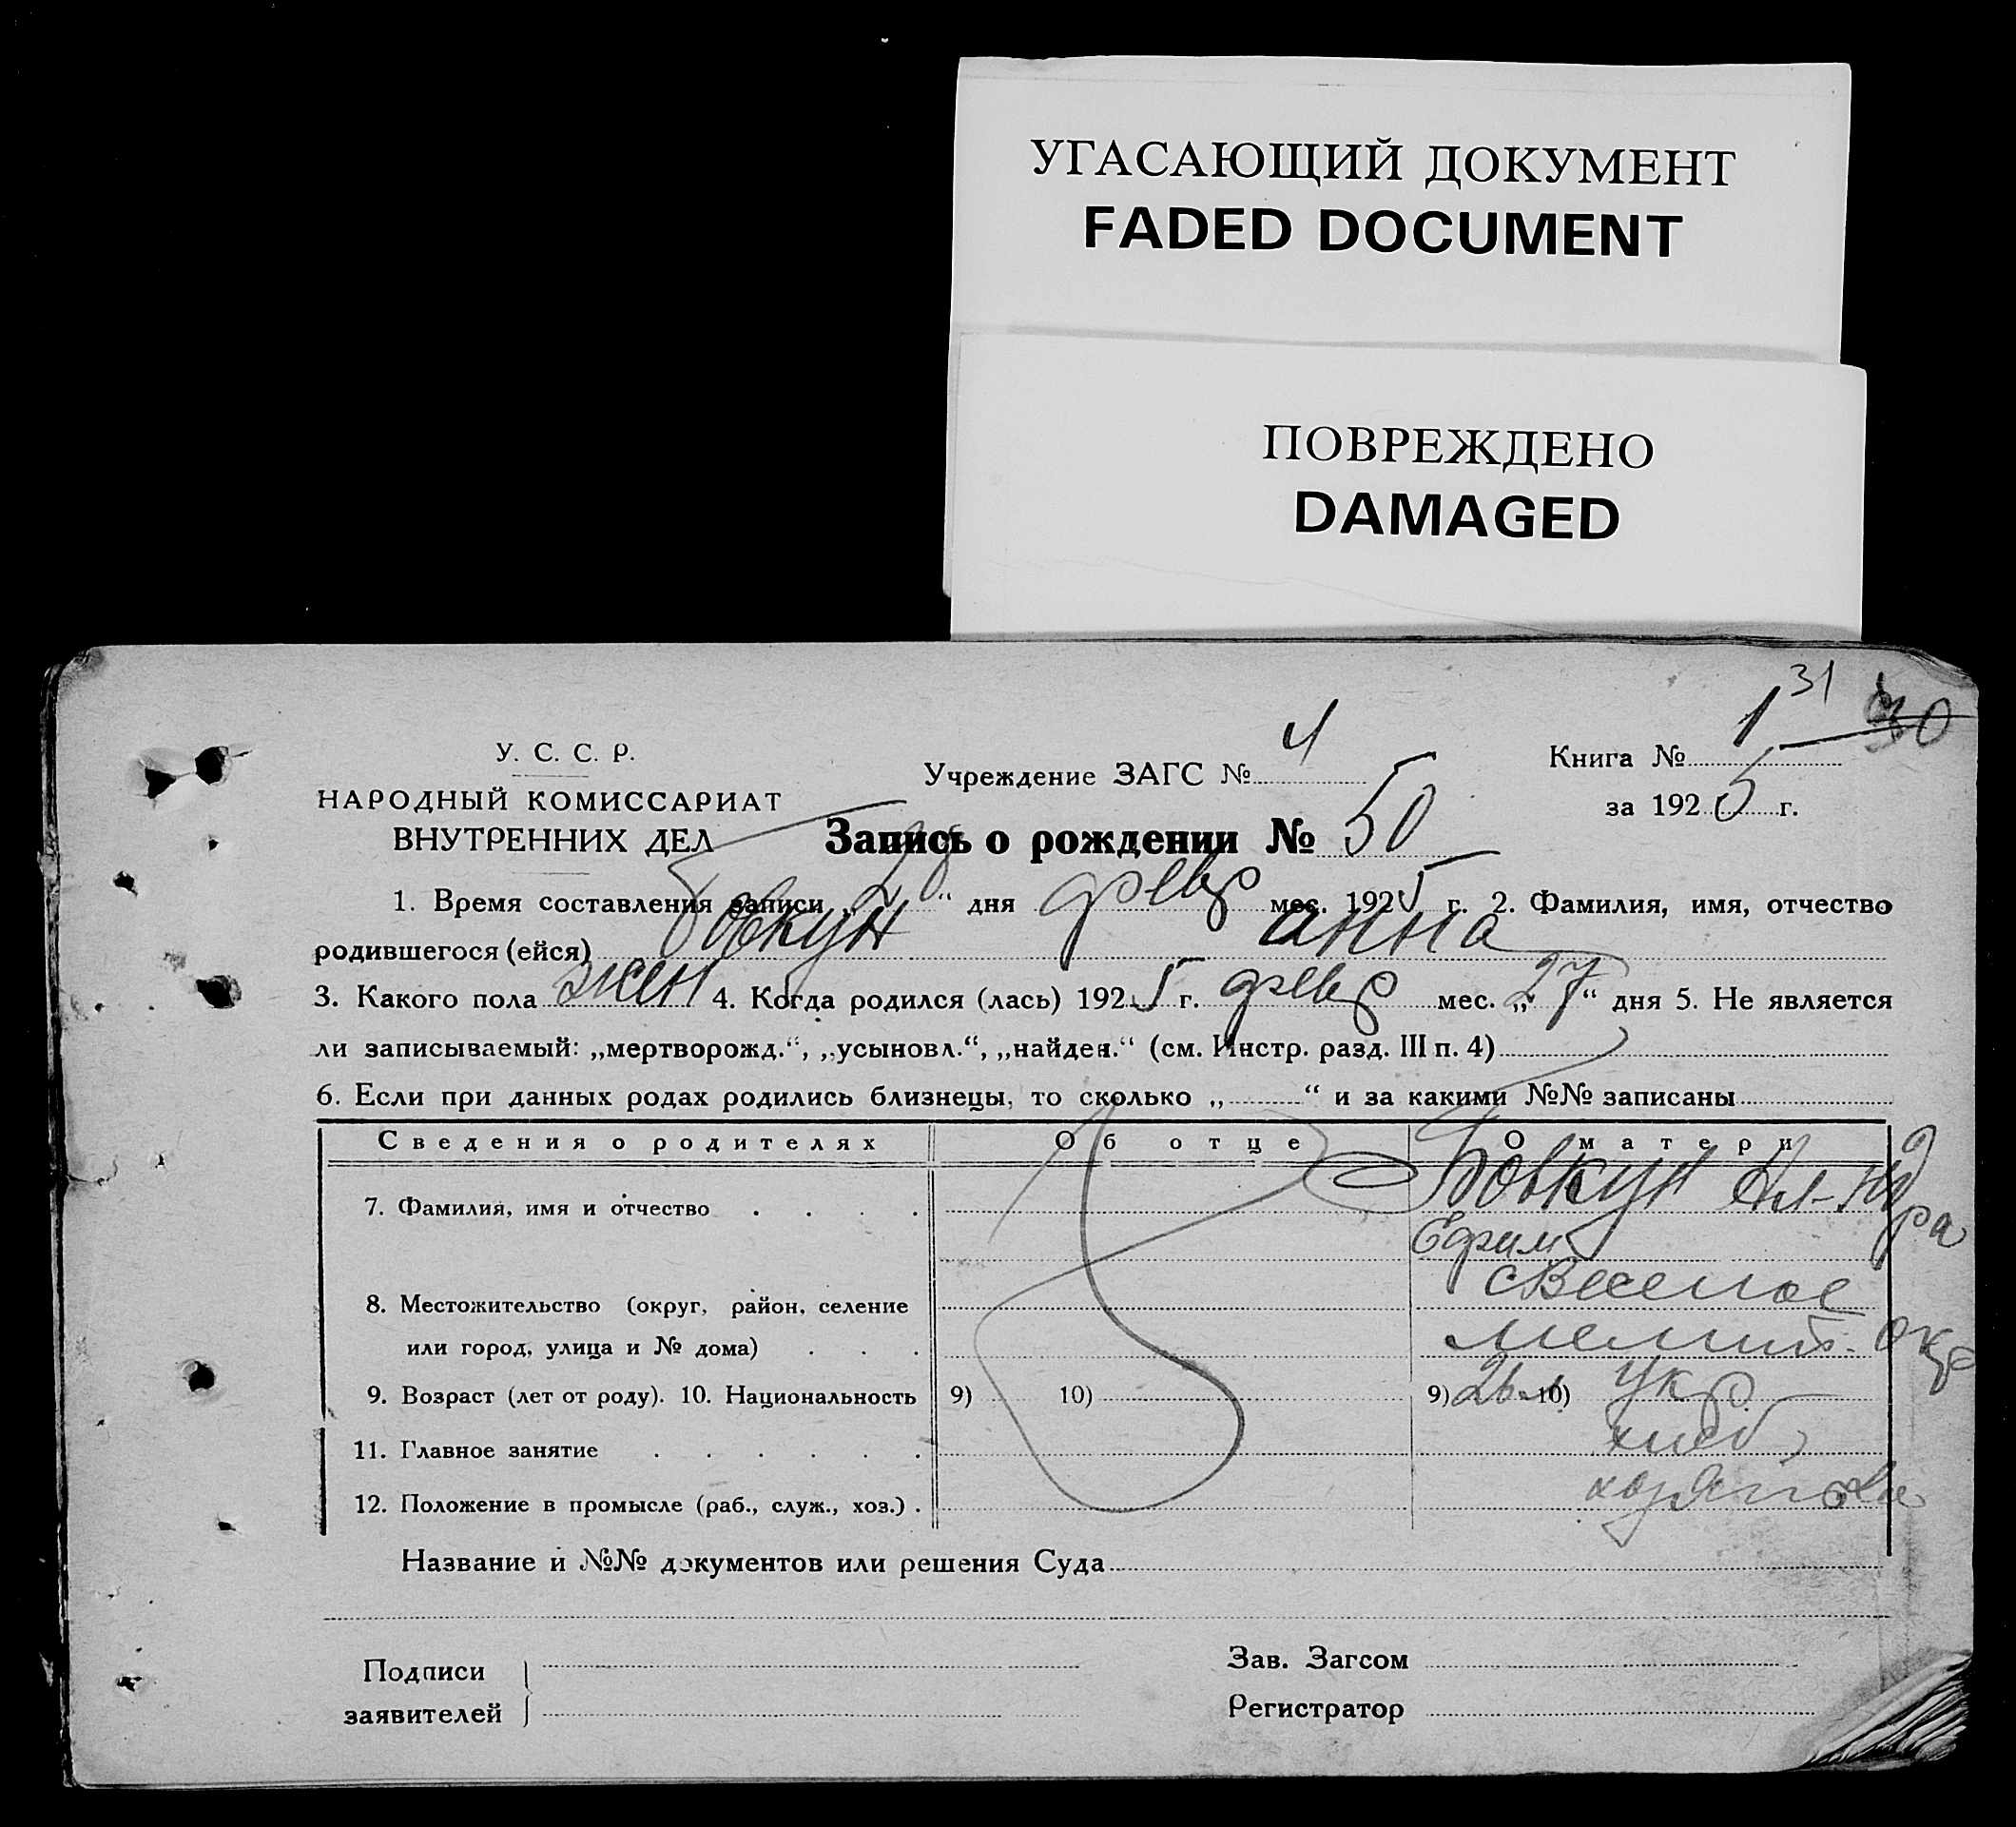 УГАСАЮЩИЙ ДОКУМЕНТ
FADED DOCUMENT
ПОВРЕЖДЕНО
DAMAGED
31
1 30
У. С. С. Р.
НАРОДНЫЙ КОМИССАРИАТ
ВНУТРЕННИХ ДЕЛ
Учреждение ЗАГС № 4
Книга №
за 1925 г.
Запись о рождении № 50
1. Время составления записи „28“ дня февр мес. 1925 г. 2. Фамилия, имя, отчество
родившегося (ейся) Бовкун Анна
3. Какого пола жен 4. Когда родился (лась) 1925 г. февр мес. „27“ дня 5. Не является
ли записываемый: „мертворожд.“, „усыновл.“, „найден.“ (см. Инстр. разд. III п. 4)
6. Если при данных родах родились близнецы, то сколько „ “ и за какими №№ записаны
Сведения о родителях Об отце О матери
7. Фамилия, имя и отчество Бовкун Ал-ндра
Ефим
8. Местожительство (округ, район, селение с Веселое
или город, улица и № дома) мелит. окр
9. Возраст (лет от роду). 10. Национальность 9) 10) 9) 26 л 10) Укр
11. Главное занятие хлеб
12. Положение в промысле (раб., служ., хоз.)
Название и №№ документов или решения Суда
Подписи
заявителей
Зав. Загсом
Регистратор